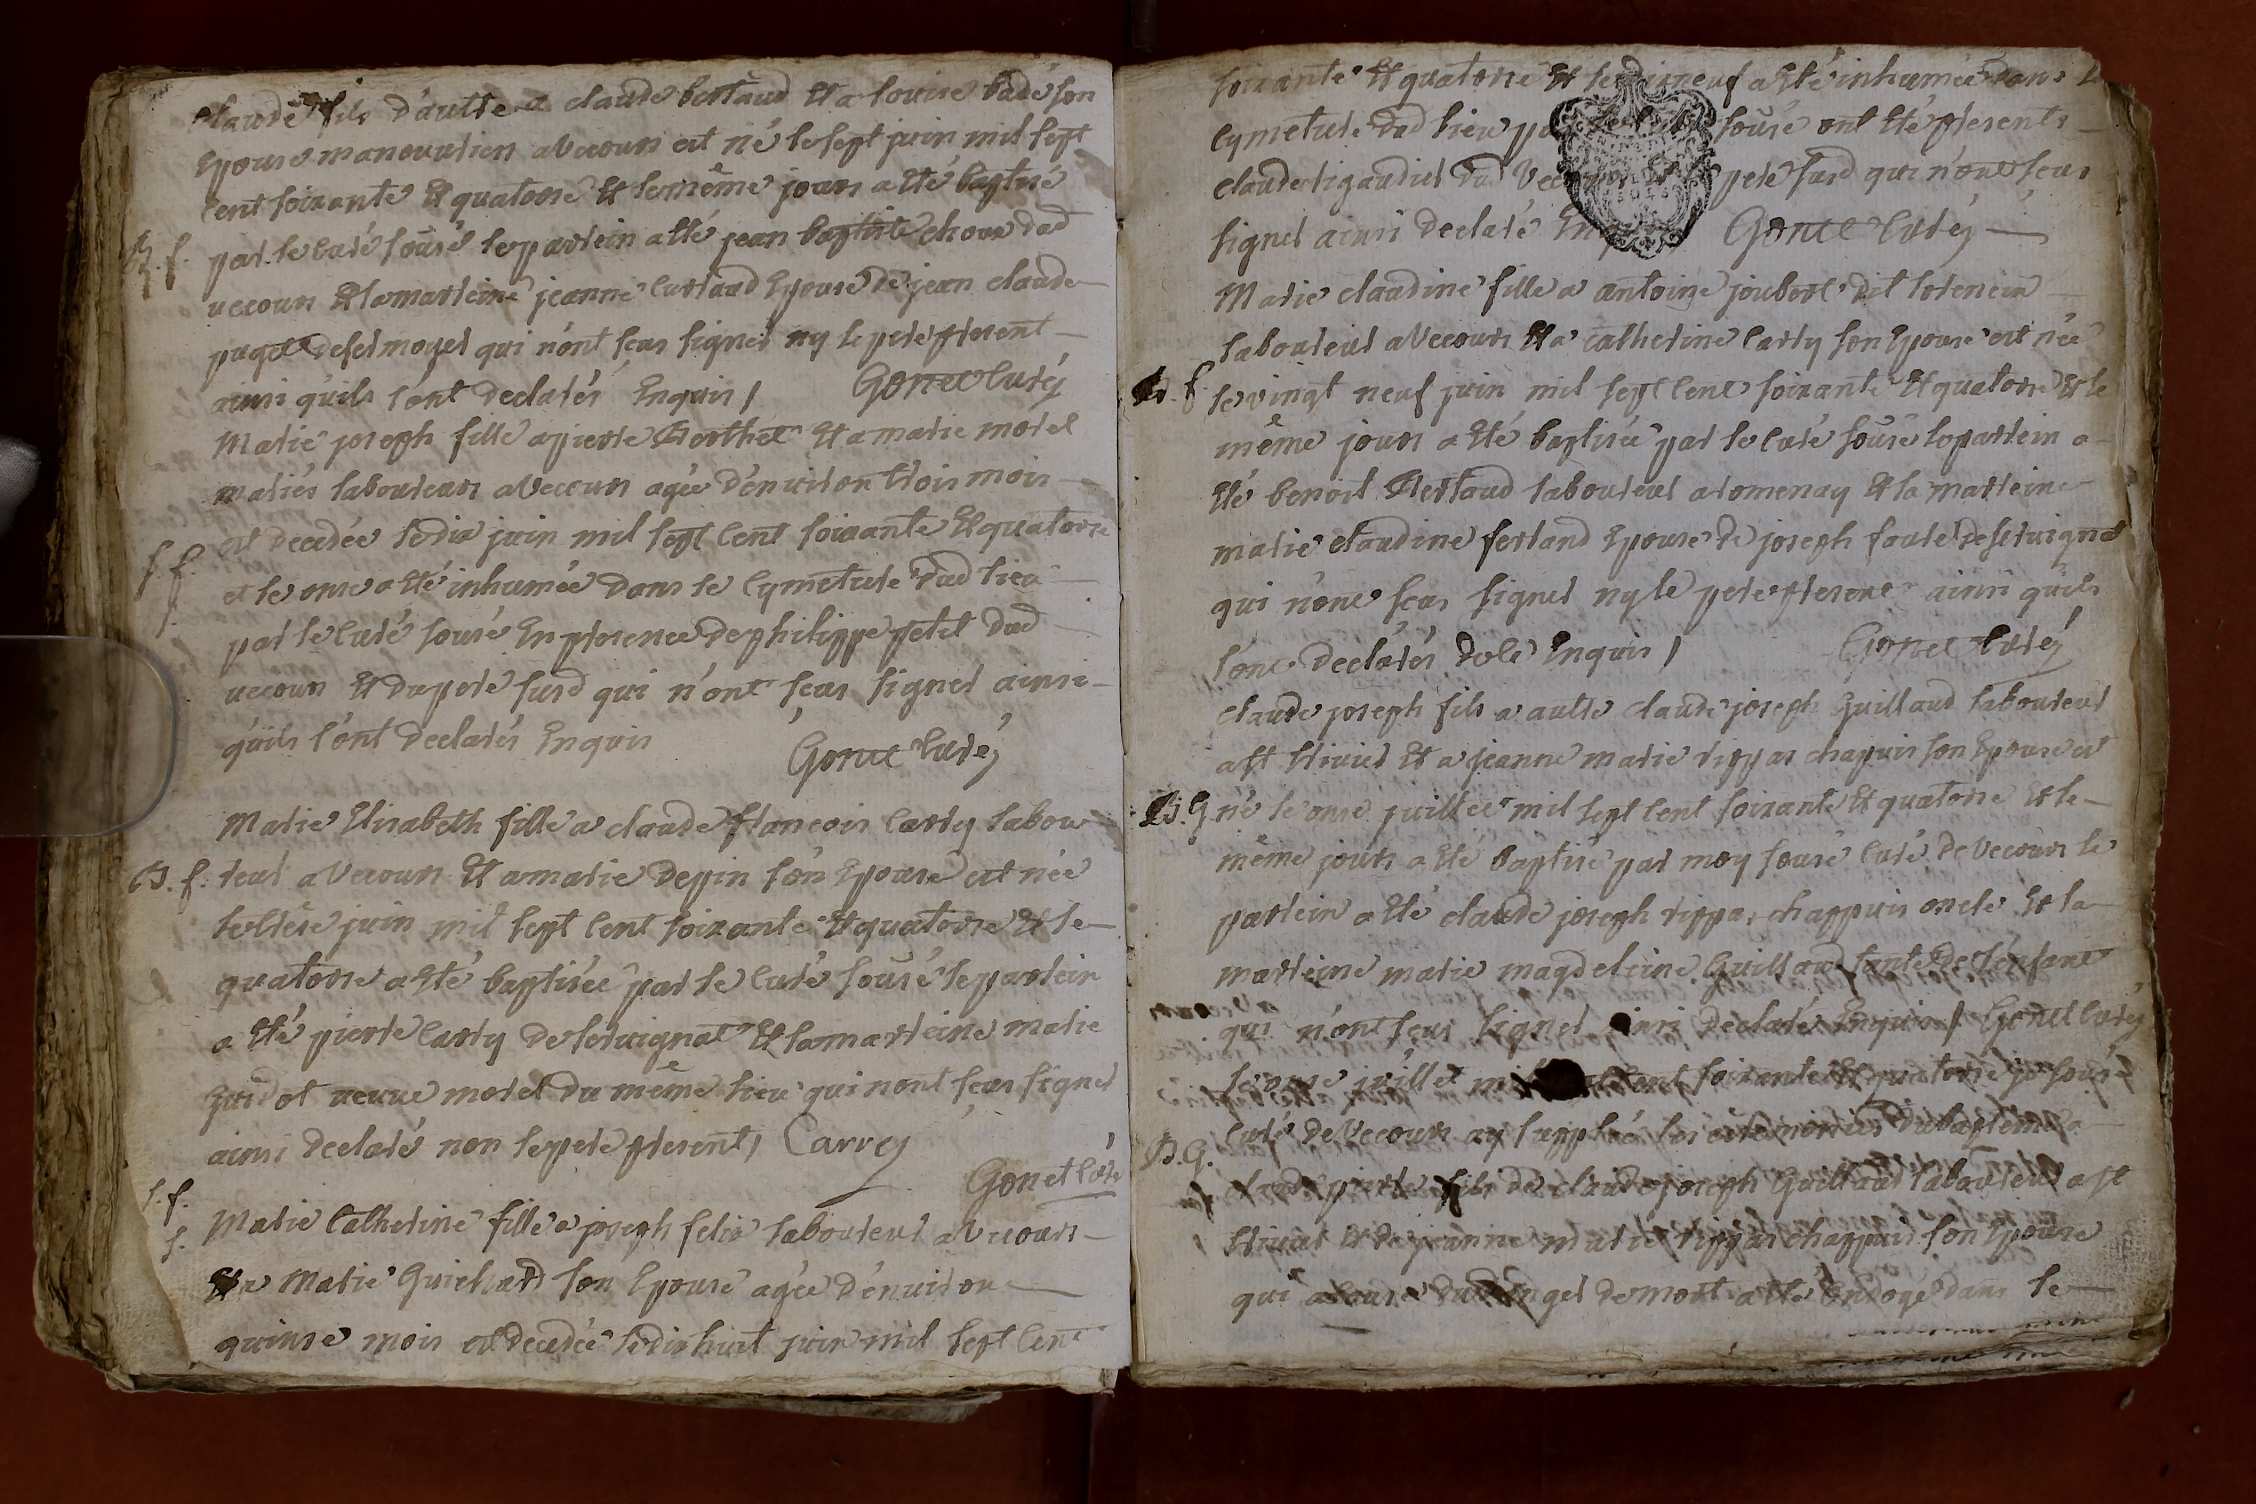 claude fils d'autre claude bertaud et a louise badé son
Epouse manouvrien a vecours est né le sept juin mil sept
cent soixante et quatorse et le même jour a eté baptisé
B. f.
par le curé sousé le parrein a été jean baptiste choux dud
vecours et la marreine jeanne curtaud Epouse de jean claude
puget de sermoyer qui n'ont sçeu signer ny le pere present
ainsi qu'ils l'ont declarés Enquis / Gonet curé
Marie joseph fille a pierre Berthet et a marie morel
mariés laboureurs a vecours agée d'environ trois mois
est decedée le dix juin mil sept cent soixante et quatorse
S. f.
f.
et le onse a été inhumée dans le cymeture dud lieu
par le curé sousé En presence de philippe petit dud
vecours et du pere susd qui n'ont sçeu signer ainsi
qu'ils l'ont declarés Enquis Gonet curé
Marie Elisabeth fille a claude françois carry labou
B. f. reur a vecours et a marie depin son Epouse est née
le trese juin mil sept cent soixante et quatorse et le
quatorse a été baptisée par le curé sousé le parrein
a été pierre carry de servignat et la marreine marie
Guidot veuve morel du même lieu qui n'ont sçeu signer
ainsi declaré non le pere present / Carrey
Gonet curé
S. f.
f.
Marie Catherine fille a joseph felix laboureur a vecours
et a Marie Guichard son Epouse agée d'environ
quinse mois est decedée le dix huit juin mil sept cent
soixante et quatorse et le dix neuf a été inhumée dans le
cymeture dud lieu par sousé ont été presents
claude rigaudier dud pere susd qui n'ont sçeu
signer ainsi declaré Gonet curé
Marie claudine fille a antoine joubert dit lorencin
laboureur a vecours et a catherine carry son Epouse est née
B. f. le vingt neuf juin mil sept cent soixante et quatorse et le
même jour a été baptisée par le curé sousé le parrein a
été benoit Bertaud laboureur a romenay et la marreine
marie claudine ferland Epouse de joseph foure de servignat
qui n'ont sçeu signer ny le pere present ainsi qu'ils
l'ont declarés de ce Enquis / Gonet curé
claude joseph fils a autre claude joseph Guillaud laboureur
a st trivier et a jeanne marie rippas chapuis son Epouse est
B. G. né le onse juillet mil sept cent soixante et quatorse et le
même jour a été baptisé par moy sousé curé de vecours le
parrein a été claude joseph rippas chappuis oncle et la
marreine marie magdeleine Guillaud tante de l'enfant
qui n'ont sçeu signer ainsi declaré Enquis / Gonet curé
le onse juillet mil cent soixante et quatorse je sousé
curé de vecours ay suppleé les ceremonies du baptême a
B. G.
claude pierre fils de claude joseph Guillaud laboureur a st
trivier et de jeanne marie rippas chappuis son Epouse
qui a cause du danger de mort a été Ondoyé dans le